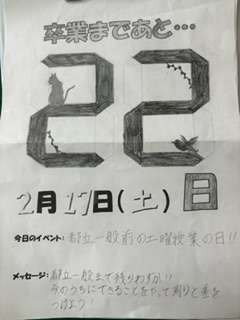 卒業まであと…
22
日
2月17日(土)
今日のイベント: 都立一般前の土曜授業の日!!
メッセージ: 都立一般まで残りわずか!!
今のうちにできることをやって周りと差を
つけよう!